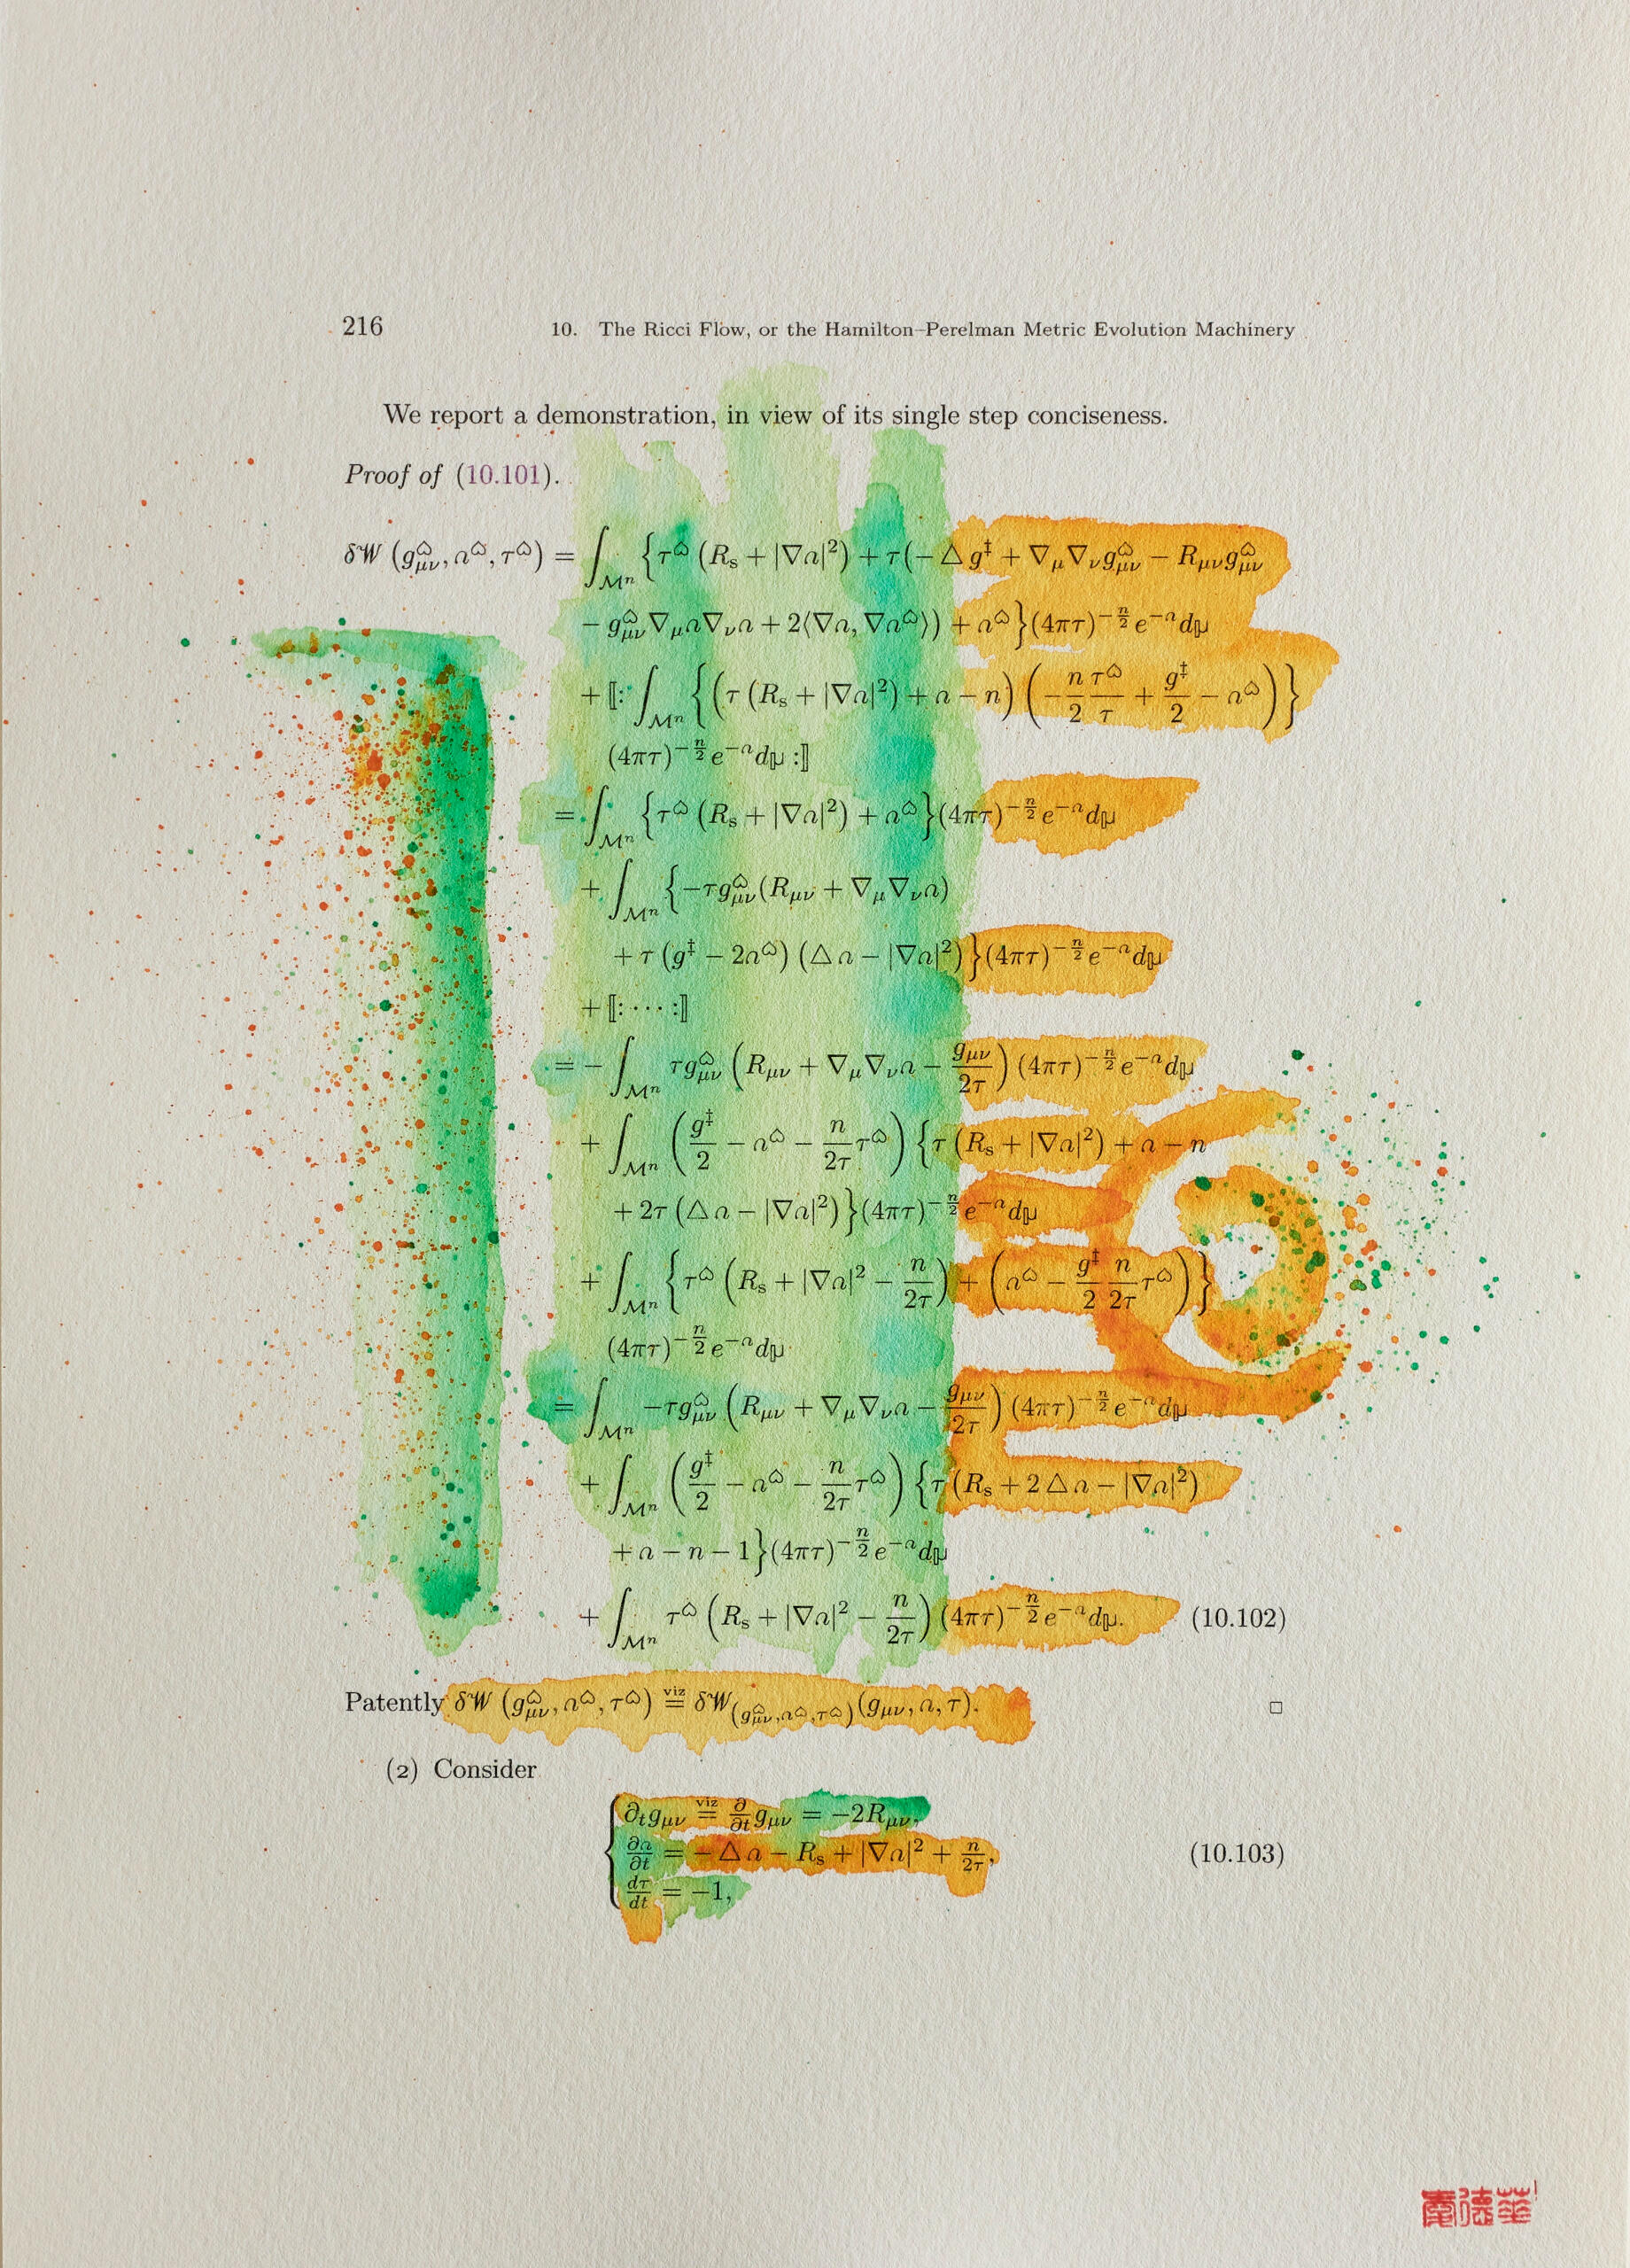 216 10. The Ricci Flow, or the Hamilton–Perelman Metric Evolution Machinery
We report a demonstration, in view of its single step conciseness.
Proof of (10.101).
δ𝒲 (g^⌂_{μν}, a^⌂, τ^⌂) = ∫_{ℳⁿ} {τ^⌂ (R_s + |∇a|²) + τ(−△g^‡ + ∇_μ∇_ν g^⌂_{μν} − R_{μν}g^⌂_{μν}
− g^⌂_{μν}∇_μa∇_νa + 2⟨∇a, ∇a^⌂⟩) + a^⌂}(4πτ)^{−n/2} e^{−a}dμ
+ ⟦: ∫_{ℳⁿ} {(τ (R_s + |∇a|²) + a − n) (−n/2 τ^⌂/τ + g^‡/2 − a^⌂)}
(4πτ)^{−n/2} e^{−a}dμ :⟧
= ∫_{ℳⁿ} {τ^⌂ (R_s + |∇a|²) + a^⌂}(4πτ)^{−n/2} e^{−a}dμ
+ ∫_{ℳⁿ} {−τg^⌂_{μν}(R_{μν} + ∇_μ∇_νa)
+ τ (g^‡ − 2a^⌂) (△a − |∇a|²)}(4πτ)^{−n/2} e^{−a}dμ
+ ⟦: · · · · :⟧
= − ∫_{ℳⁿ} τg^⌂_{μν} (R_{μν} + ∇_μ∇_νa − g_{μν}/2τ) (4πτ)^{−n/2} e^{−a}dμ
+ ∫_{ℳⁿ} (g^‡/2 − a^⌂ − n/2τ τ^⌂) {τ (R_s + |∇a|²) + a − n
+ 2τ (△a − |∇a|²)}(4πτ)^{−n/2} e^{−a}dμ
+ ∫_{ℳⁿ} {τ^⌂ (R_s + |∇a|² − n/2τ) + (a^⌂ − g^‡/2 n/2τ τ^⌂)}
(4πτ)^{−n/2} e^{−a}dμ
= ∫_{ℳⁿ} −τg^⌂_{μν} (R_{μν} + ∇_μ∇_νa − g_{μν}/2τ) (4πτ)^{−n/2} e^{−a}dμ
+ ∫_{ℳⁿ} (g^‡/2 − a^⌂ − n/2τ τ^⌂) {τ (R_s + 2△a − |∇a|²)
+ a − n − 1}(4πτ)^{−n/2} e^{−a}dμ
+ ∫_{ℳⁿ} τ^⌂ (R_s + |∇a|² − n/2τ) (4πτ)^{−n/2} e^{−a}dμ. (10.102)
Patently δ𝒲 (g^⌂_{μν}, a^⌂, τ^⌂) viz= δ𝒲_{(g^⌂_{μν},a^⌂,τ^⌂)}(g_{μν}, a, τ). □
(2) Consider
∂_t g_{μν} viz= ∂/∂t g_{μν} = −2R_{μν},
∂a/∂t = −△a − R_s + |∇a|² + n/2τ, (10.103)
dτ/dt = −1,